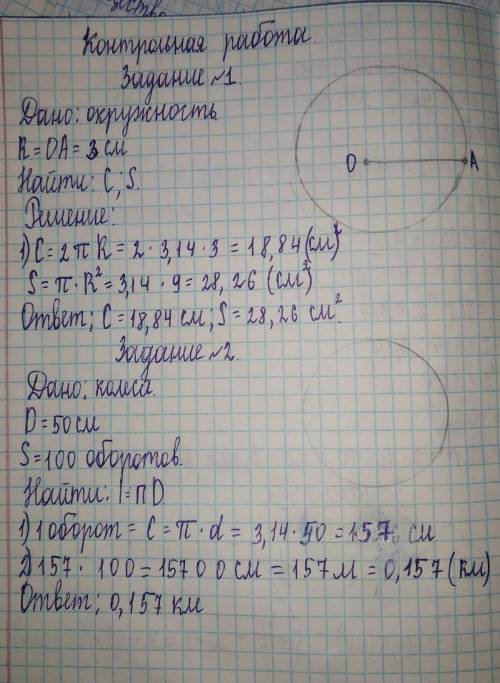 Контрольная работа.
Задание №1.
Дано: окружность.
R = OA = 3 см
Найти: C; S.
O A
Решение:
1) C = 2πR = 2 · 3,14 · 3 = 18,84 (см)²
S = π · R² = 3,14 · 9 = 28,26 (см²)
Ответ; C = 18,84 см; S = 28,26 см².
Задание №2.
Дано: колеса.
D = 50 см
S = 100 оборотов.
Найти: l = πD.
1) 1 оборот = C = π · d = 3,14 · 50 = 157 см
2) 157 · 100 = 15700 см = 157 м = 0,157 (км)
Ответ; 0,157 км